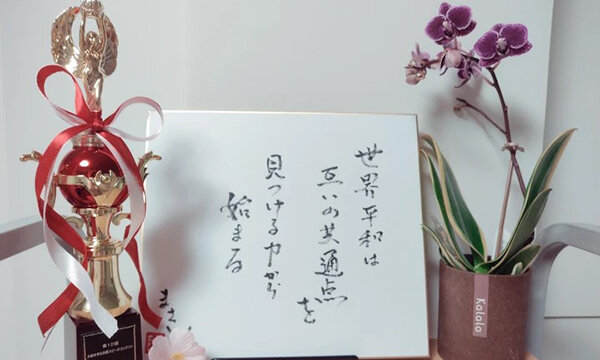 世界平和は
互いの共通点を
見つける力から
始まる
まさし
Kalala
第10回